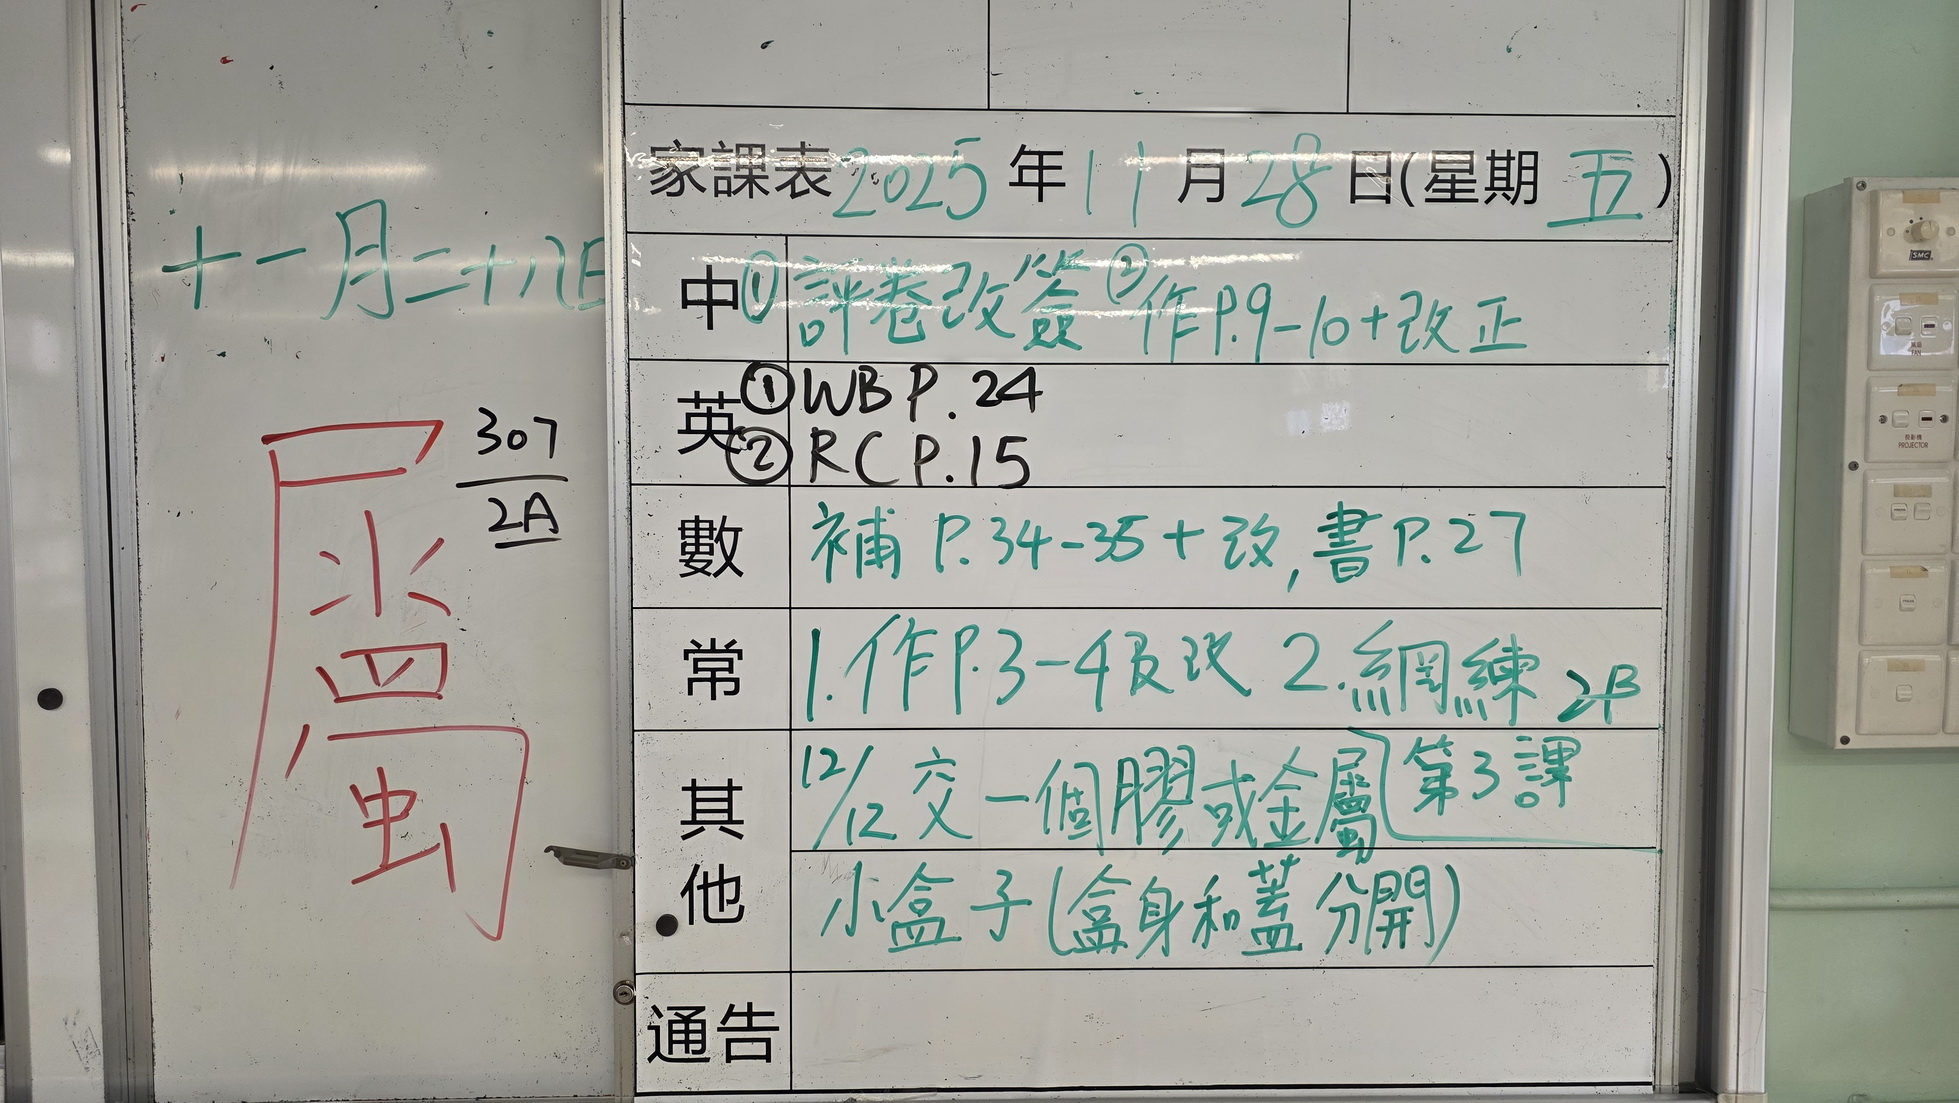 十一月二十八日
屬
307
2A
家課表2025年11月28日(星期五)
中 ①評卷改簽 ②作P.9-10+改正
英 ①WB P.24
②RC P.15
數 補 P.34-35+改,書P.27
常 1.作P.3-4及改 2.網練 2B
第3課
其他 12/12 交一個膠或金屬
小盒子(盒身和蓋分開)
通告
SMC
FAN
PROJECTOR